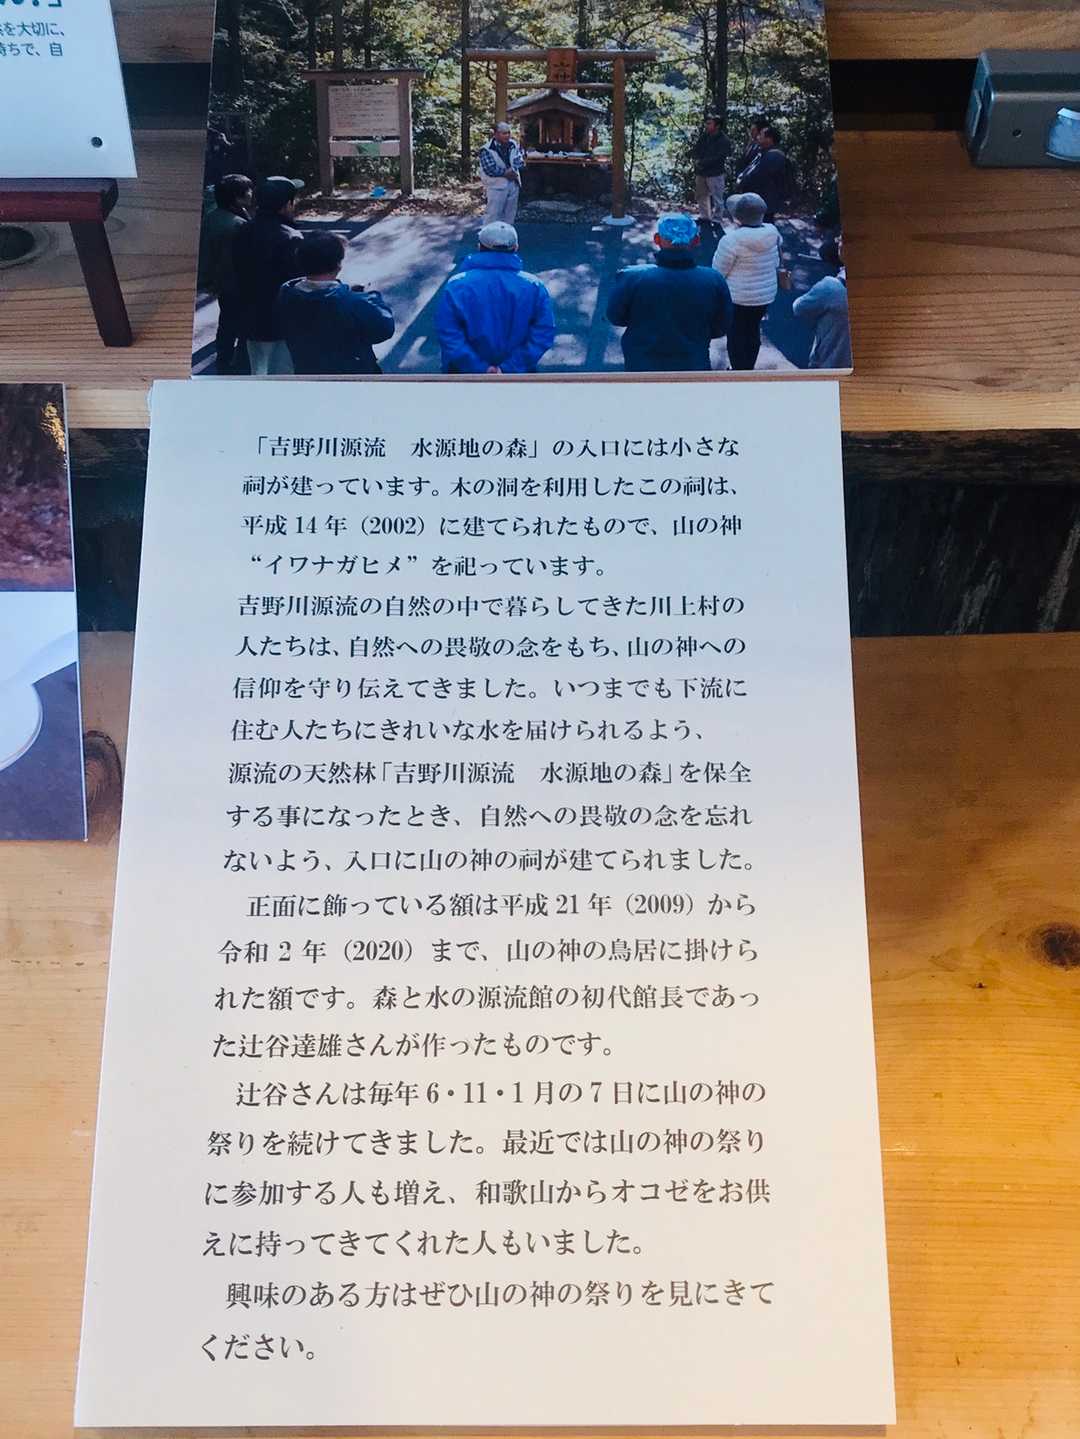 を大切に、
持ちで、自
山神
「吉野川源流　水源地の森」の入口には小さな
祠が建っています。木の洞を利用したこの祠は、
平成14年（2002）に建てられたもので、山の神
“イワナガヒメ”を祀っています。
吉野川源流の自然の中で暮らしてきた川上村の
人たちは、自然への畏敬の念をもち、山の神への
信仰を守り伝えてきました。いつまでも下流に
住む人たちにきれいな水を届けられるよう、
源流の天然林「吉野川源流　水源地の森」を保全
する事になったとき、自然への畏敬の念を忘れ
ないよう、入口に山の神の祠が建てられました。
正面に飾っている額は平成21年（2009）から
令和2年（2020）まで、山の神の鳥居に掛けら
れた額です。森と水の源流館の初代館長であっ
た辻谷達雄さんが作ったものです。
辻谷さんは毎年6・11・1月の7日に山の神の
祭りを続けてきました。最近では山の神の祭り
に参加する人も増え、和歌山からオコゼをお供
えに持ってきてくれた人もいました。
興味のある方はぜひ山の神の祭りを見にきて
ください。